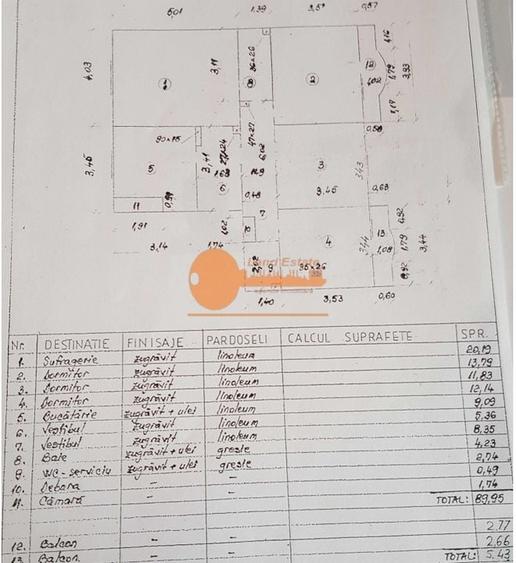 5,01 1,39 3,51 0,57
4,03 3,11 36×26 1,16 1,79 3,93 4,02
1 10 2 12
1,17
0,58
30×15 47×27
3,46 5 3,41 27×24 6,02 3 3,43
1,63
6 0,48 3,46 0,63
11 0,99
7
1,91 1,02 8 4,92
3,14 1,74 4 3,44 13 1,79 3,44
1,08
2,02 9 35×26 0,92
Land Estate
1,40 3,53 0,60
Nr. DESTINATIE FINISAJE PARDOSELI CALCUL SUPRAFETE SPR.
1. Sufragerie zugrăvit linoleum 20,19
2. Dormitor zugrăvit linoleum 13,79
3. Dormitor zugrăvit linoleum 11,83
4. Dormitor zugrăvit linoleum 12,14
5. Bucătărie zugrăvit + ulei linoleum 9,09
6. Vestibul zugrăvit linoleum 5,36
7. Vestibul zugrăvit linoleum 8,35
8. Baie zugrăvit + ulei gresie 4,23
9. WC-serviciu zugrăvit + ulei gresie 2,74
10. Debara - - 0,49
11. Cămară - - 1,74
TOTAL: 89,95
12. Balcon - - 2,77
13. Balcon - - 2,66
TOTAL: 5,43